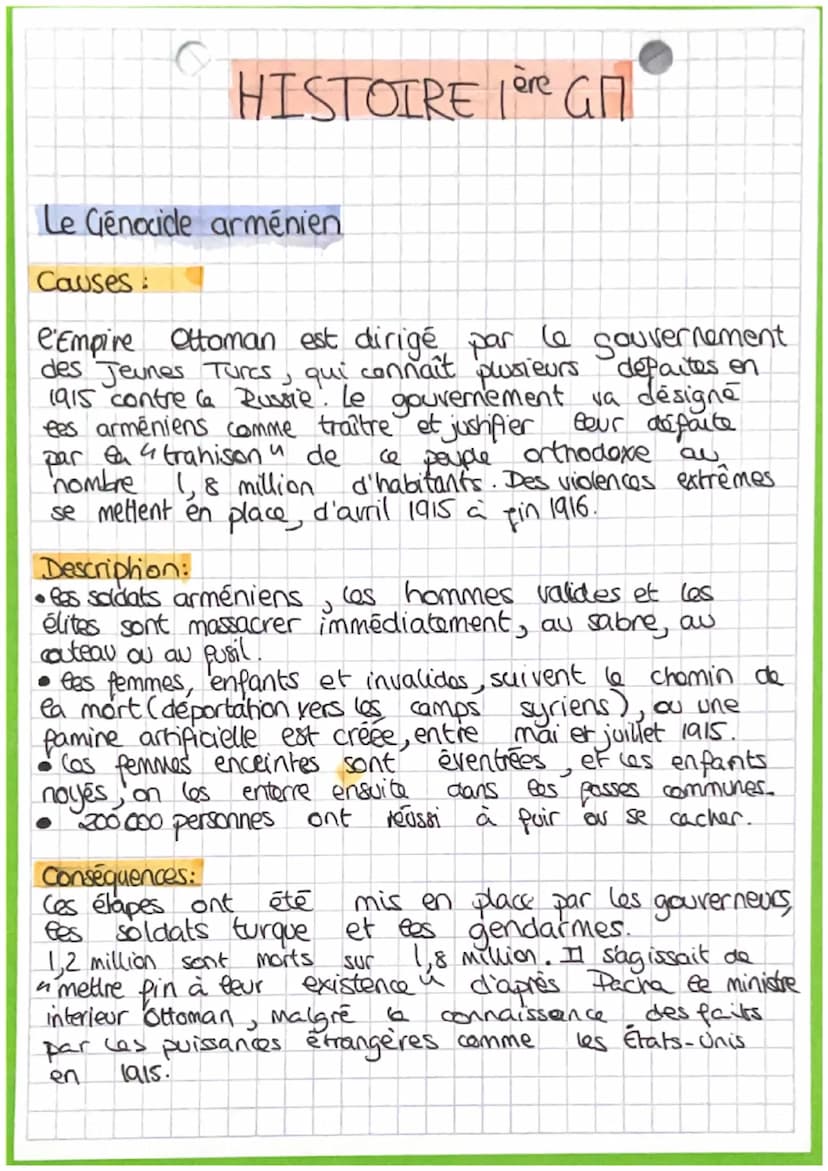 HISTOIRE 1ère GM
Le Génocide arménien
Causes :
l'Empire Ottoman est dirigé par le gouvernement
des Jeunes Turcs, qui connaît plusieurs défaites en
1915 contre la Russie. Le gouvernement va désigné
les arméniens comme traître et justifier leur défaite
par la "trahison" de ce peuple orthodoxe au
nombre 1,8 million d'habitants. Des violences extrêmes
se mettent en place, d'avril 1915 à fin 1916.
Description:
• les soldats arméniens, les hommes valides et les
élites sont massacrer immédiatement, au sabre, au
couteau ou au fusil.
• les femmes, enfants et invalides, suivent le chemin de
la mort (déportation vers les camps syriens), ou une
famine artificielle est créée, entre mai et juillet 1915.
• les femmes enceintes sont éventrées, et les enfants
noyés, on les enterre ensuite dans les fosses communes.
• 200 000 personnes ont réussi à fuir ou se cacher.
Conséquences:
Ces étapes ont été mis en place par les gouverneurs,
les soldats turque et les gendarmes.
1,2 million sont morts sur 1,8 million. Il s'agissait de
"mettre fin à leur existence" d'après Pacha le ministre
interieur Ottoman, malgré la connaissance des faits
par les puissances étrangères comme les États-Unis
en 1915.